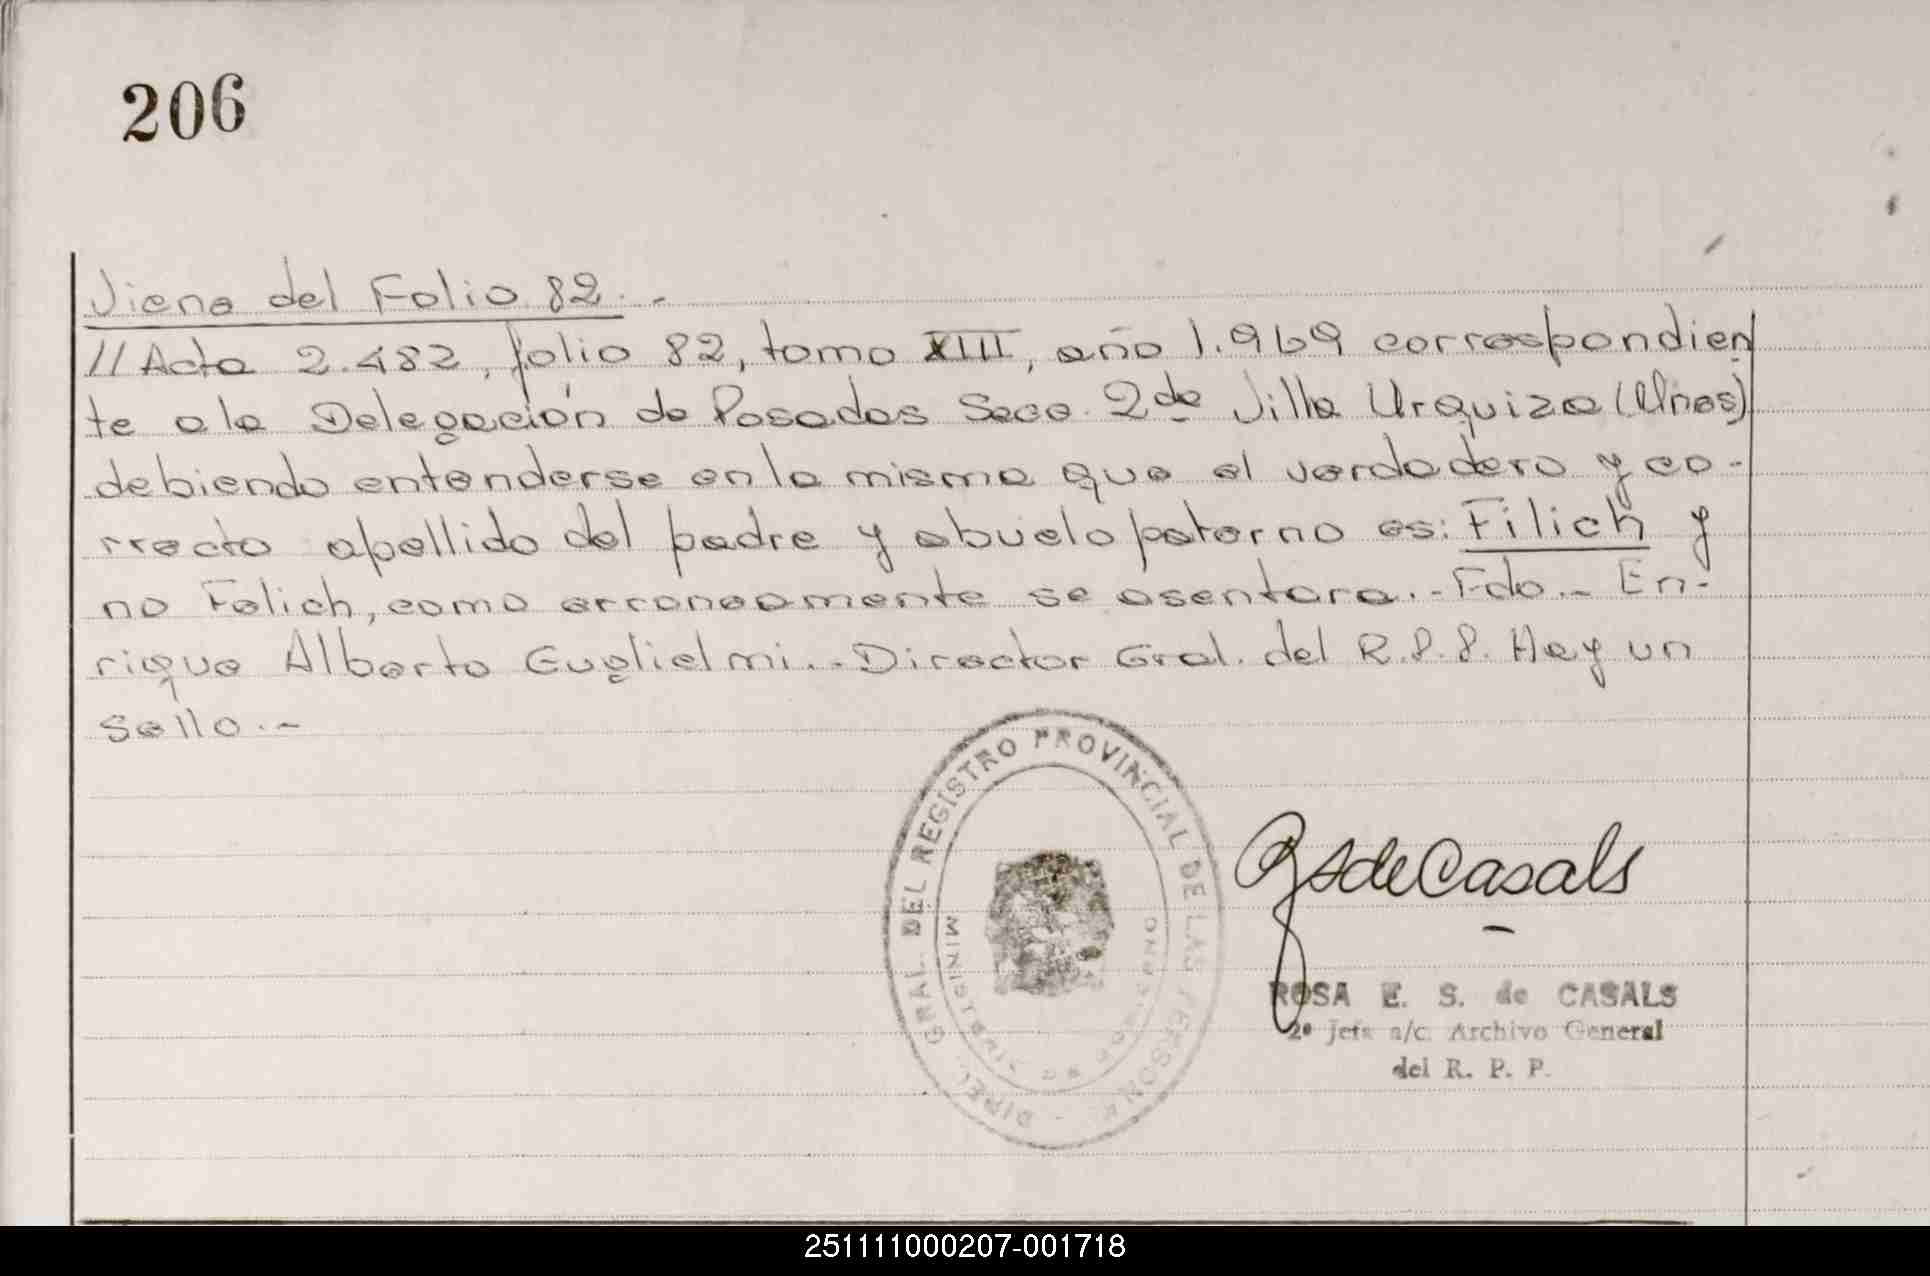 206
Viene del Folio 82.-
//Acta 2.482, folio 82, tomo XIII, año 1.969 correspondien
te a la Delegación de Posadas Secc. 2da Villa Urquiza (Mnes)
debiendo entenderse en la misma que el verdadero y co-
rrecto apellido del padre y abuelo paterno es: Filich y
no Felich, como erroneamente se asentara.- Fdo.- En-
rique Alberto Guglielmi.- Director Gral. del R.P.P. Hay un
sello.-
DIREC. GRAL. DEL REGISTRO PROVINCIAL DE LAS PERSONAS
MINISTERIO DE GOBIERNO
RSdeCasals
ROSA E. S. de CASALS
2º Jefe a/c. Archivo General
del R. P. P.
251111000207-001718